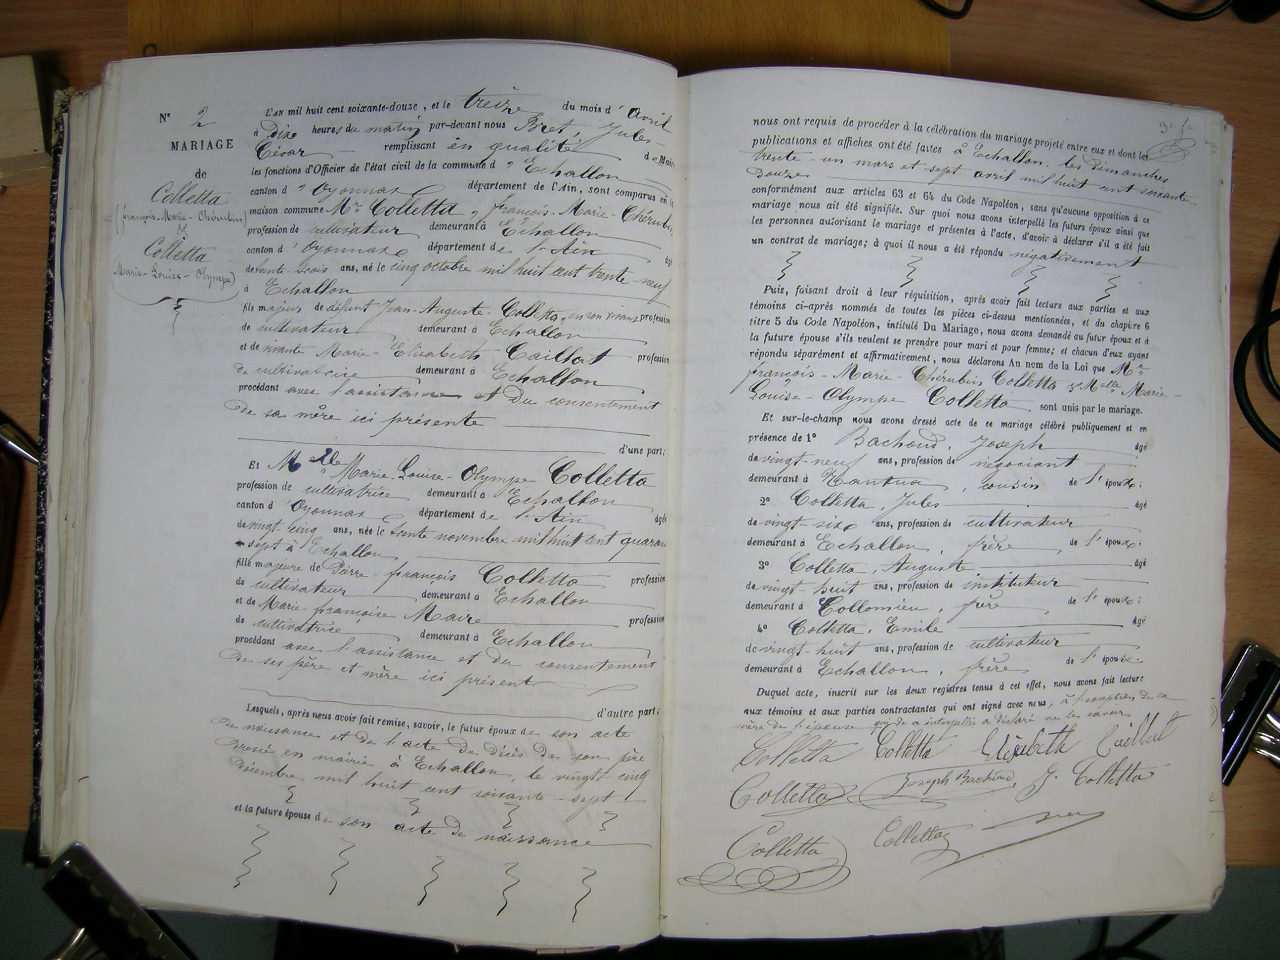 N° 2
MARIAGE
de
Colletta
(François-Marie-Chérubin)
&
Colletta
Marie-Louise-Olympe)
L'AN mil huit cent soixante-douze, et le treize du mois d'avril
à dix heures du matin par-devant nous Biret, Jules-
César remplissant en qualité de Maire
les fonctions d'Officier de l'état civil de la commune d'Echallon
canton d'Oyonnax département de l'Ain, sont comparus en la
maison commune Mr Colletta, François-Marie-Chérubin,
profession de cultivateur demeurant à Echallon
canton d'Oyonnax département de l'Ain âgé
de trente-trois ans, né le cinq octobre mil huit cent trente neuf
à Echallon
fils majeur de défunt Jean-Auguste Colletta, en son vivant profession
de cultivateur demeurant à Echallon
et de vivante Marie-Elisabeth Caillat profession
de cultivatrice demeurant à Echallon
procédant avec l'assistance et du consentement
de sa mère ici présente
d'une part;
Et Melle Marie-Louise-Olympe Colletta
profession de cultivatrice demeurant à Echallon
canton d'Oyonnax département de l'Ain âgée
de vingt-cinq ans, née le trente novembre mil huit cent quaran
-sept à Echallon
fille majeure de Pierre-François Colletta profession
de cultivateur demeurant à Echallon
et de Marie-Françoise Maire profession
de cultivatrice demeurant à Echallon
procédant avec l'assistance et du consentement
de ses père et mère ici présent
d'autre part;
Lesquels, après nous avoir fait remise, savoir, le futur époux de son acte
de naissance et de l'acte de décès de son père
dressés en mairie à Echallon, le vingt-cinq
Décembre mil huit cent soixante-sept
et la future épouse de son acte de naissance
nous ont requis de procéder à la célébration du mariage projeté entre eux et dont les
publications et affiches ont été faites à Echallon, les dimanches
trente-un mars et sept avril mil huit cent soixante-
douze
conformément aux articles 63 et 64 du Code Napoléon, sans qu'aucune opposition à ce
mariage nous ait été signifiée. Sur quoi nous avons interpellé les futurs époux ainsi que
les personnes autorisant le mariage et présentes à l'acte, d'avoir à déclarer s'il a été fait
un contrat de mariage; à quoi il nous a été répondu négativement
Puis, faisant droit à leur réquisition, après avoir fait lecture aux parties et aux
témoins ci-après nommés de toutes les pièces ci-dessus mentionnées, et du chapitre 6
titre 5 du Code Napoléon, intitulé Du Mariage, nous avons demandé au futur époux et à
la future épouse s'ils veulent se prendre pour mari et pour femme; et chacun d'eux ayant
répondu séparément et affirmativement, nous déclarons An nom de la Loi que Mr
François-Marie-Chérubin Colletta & Melle Marie-
Louise-Olympe Colletta sont unis par le mariage.
Et sur-le-champ nous avons dressé acte de ce mariage célébré publiquement et en
présence de 1° Bachoud, Joseph âgé
de vingt-neuf ans, profession de négociant
demeurant à Nantua, cousin de l'époux;
2° Colletta, Jules âgé
de vingt-six ans, profession de cultivateur
demeurant à Echallon, frère de l'époux;
3° Colletta, Auguste âgé
de vingt-huit ans, profession de instituteur
demeurant à Collomieu, frère de l'époux;
4° Colletta, Emile âgé
de vingt-huit ans, profession de cultivateur
demeurant à Echallon, frère de l'épouse.
Duquel acte, inscrit sur les deux registres tenus à cet effet, nous avons fait lecture
aux témoins et aux parties contractantes qui ont signé avec nous, à l'exception de la
mère de l'épouse qui de ce interpellée a déclaré ne le savoir
Colletta Colletta Elisabeth Caillat
Colletta Joseph Bachoud J. Colletta
Colletta Colletta